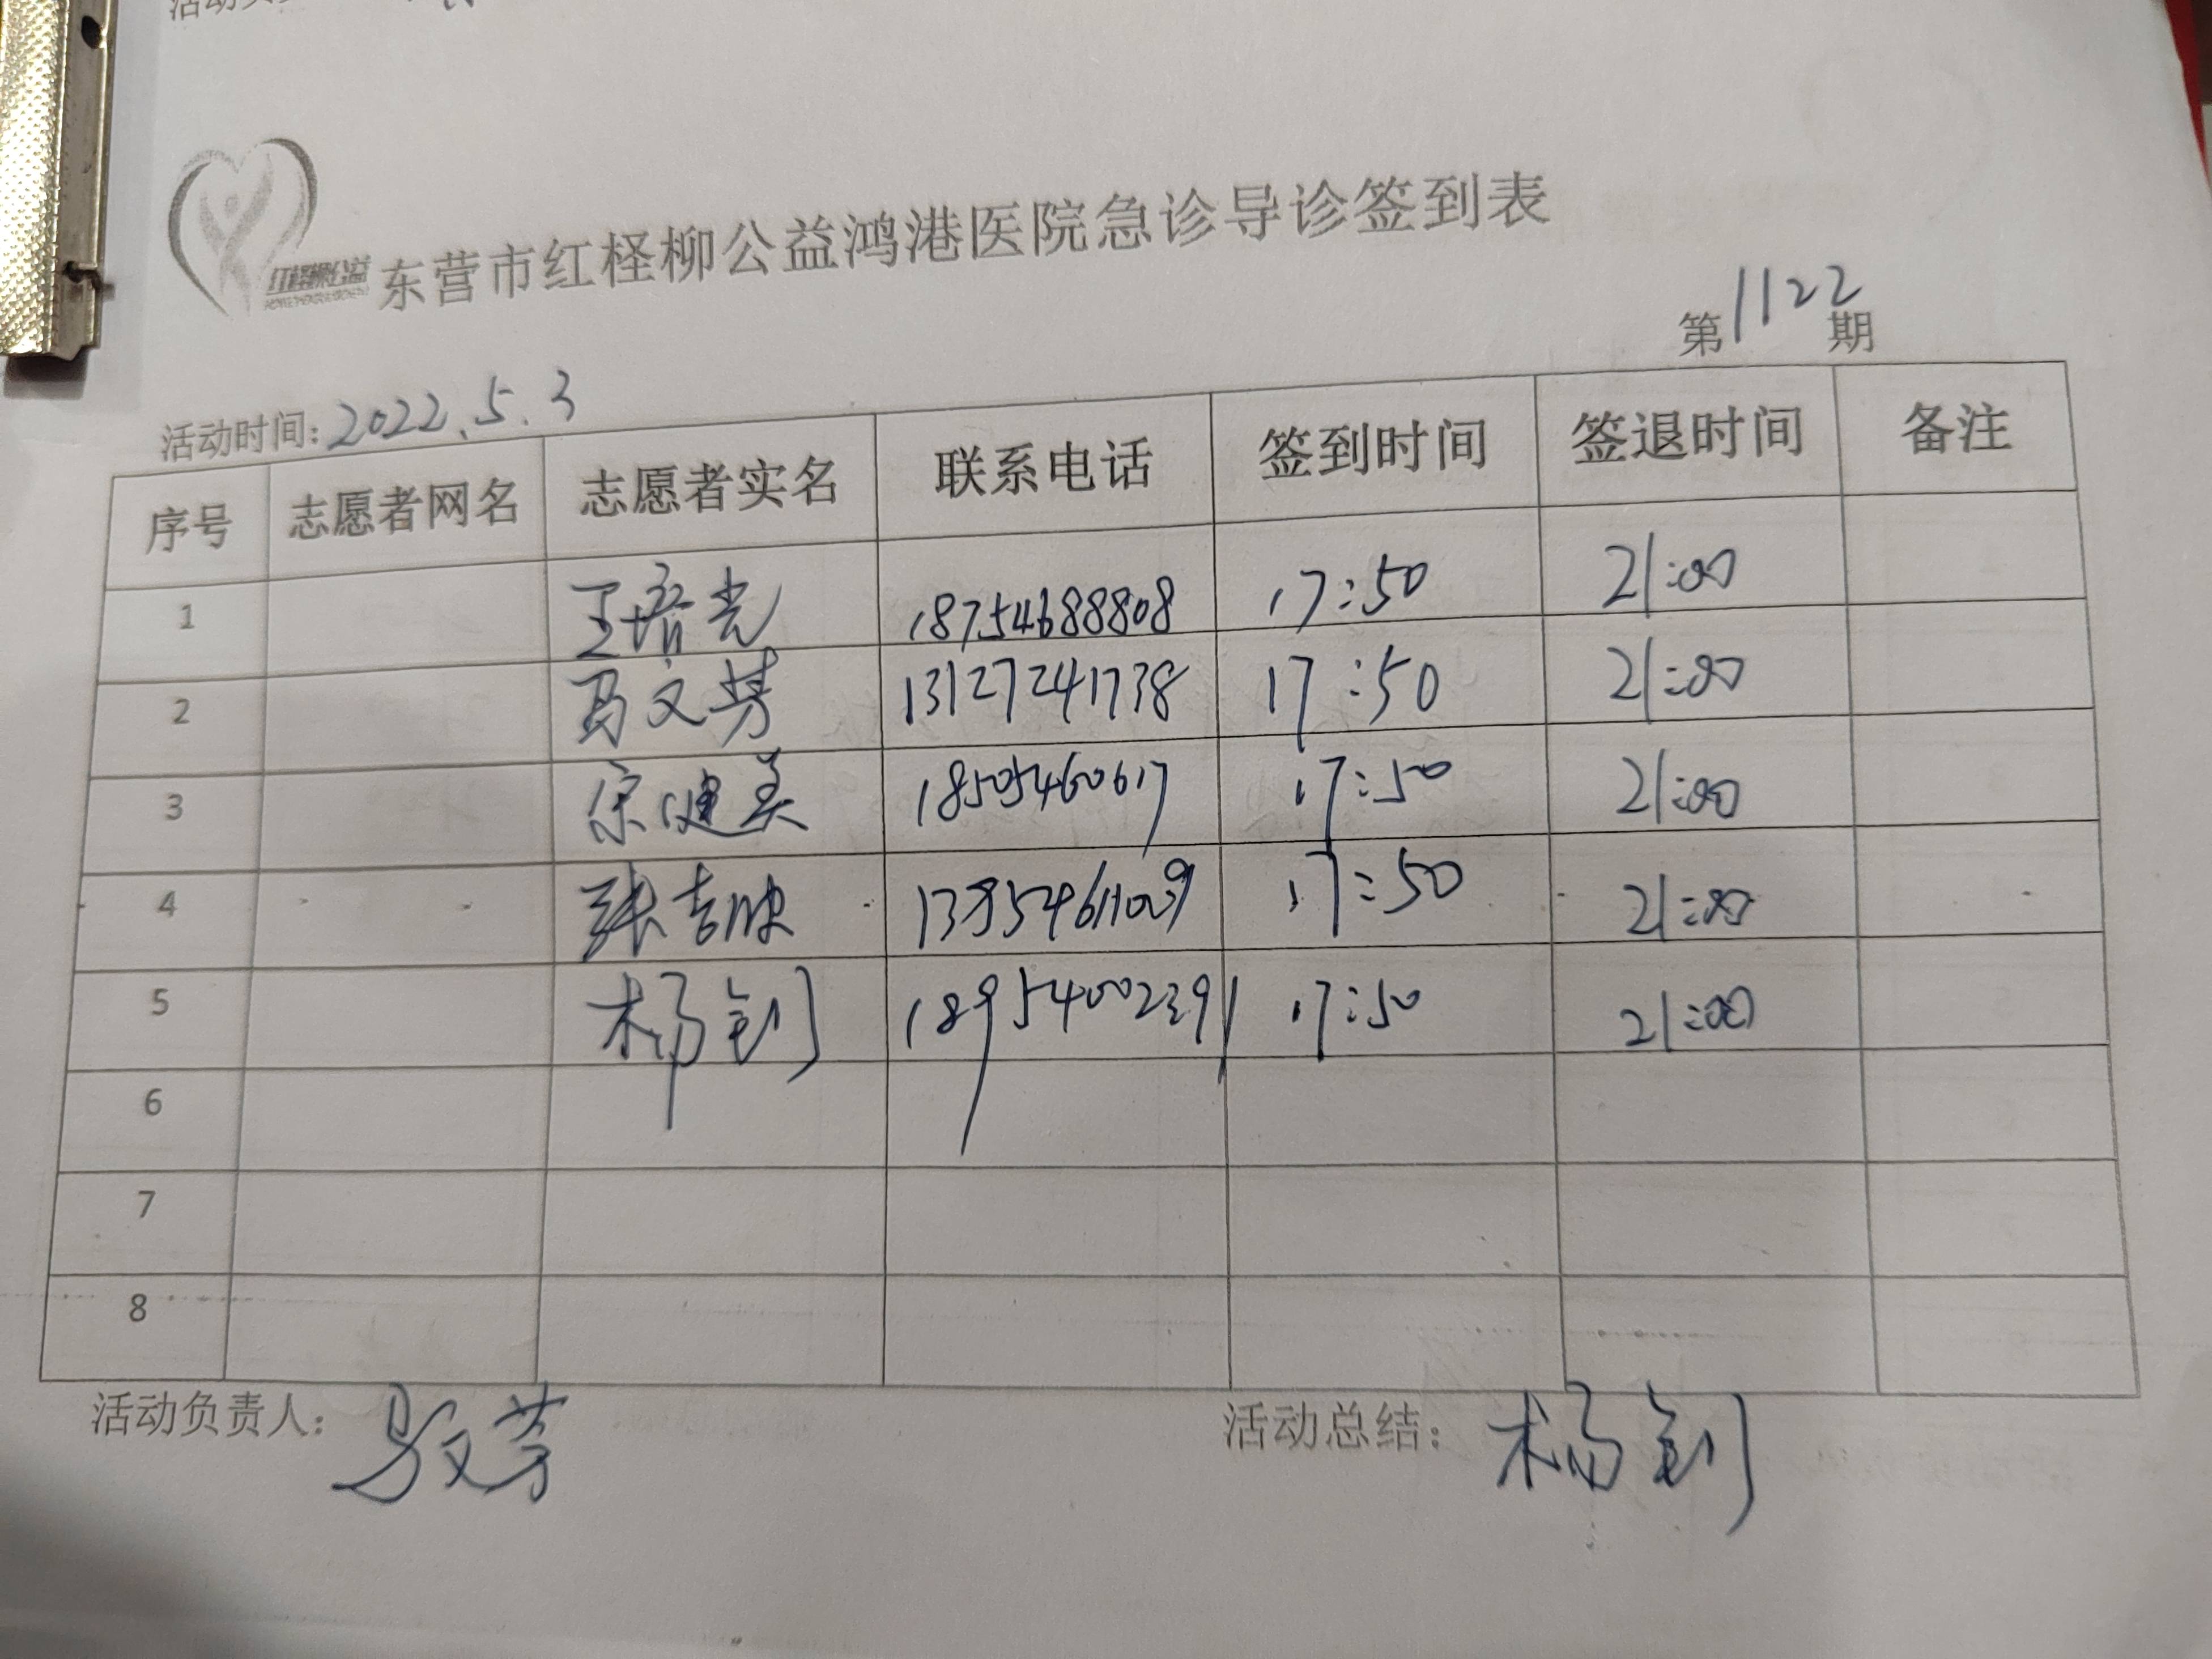 东营市红柽柳公益鸿港医院急诊导诊签到表
第1122期
活动时间:2022.5.3
序号 志愿者网名 志愿者实名 联系电话 签到时间 签退时间 备注
1 王培光 18754688808 17:50 21:00
2 马文芳 13127241738 17:50 21:00
3 宋健美 18505460617 17:50 21:00
4 张吉 17:50 21:00
5 杨钊 18954002391 17:50 21:00
6
7
8
活动负责人: 马文芳
活动总结: 杨钊